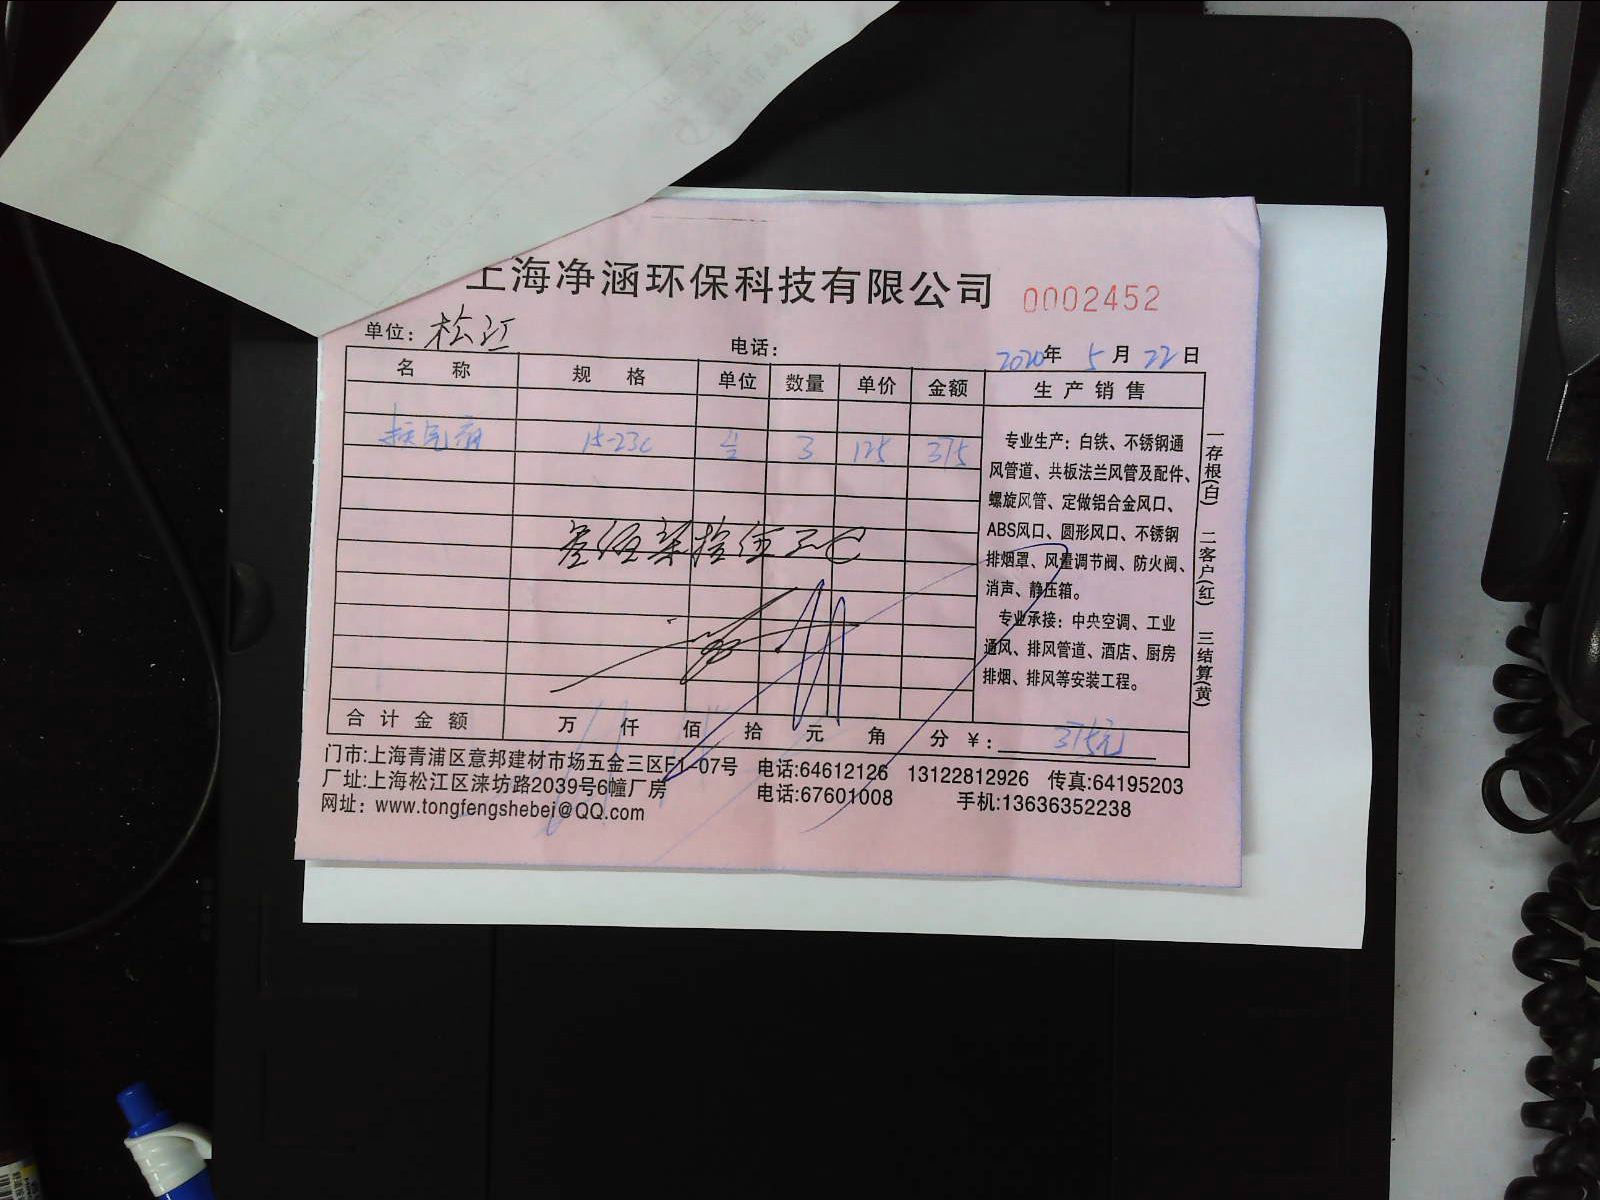 上海净涵环保科技有限公司 0002452
单位：松江 电话： 2020年 5月 22日
名 称 规 格 单位 数量 单价 金额 生 产 销 售
换气扇 15-23C 台 3 125 375
叁佰柒拾伍元
专业生产：白铁、不锈钢通
风管道、共板法兰风管及配件、
螺旋风管、定做铝合金风口、
ABS风口、圆形风口、不锈钢
排烟罩、风量调节阀、防火阀、
消声、静压箱。
专业承接：中央空调、工业
通风、排风管道、酒店、厨房
排烟、排风等安装工程。
一存根(白) 二客户(红) 三结算(黄)
合 计 金 额 万 仟 佰 拾 元 角 分 ￥：375元
门市:上海青浦区意邦建材市场五金三区F1-07号 电话:64612126 13122812926 传真:64195203
厂址:上海松江区涞坊路2039号6幢厂房 电话:67601008 手机:13636352238
网址：www.tongfengshebei@QQ.com